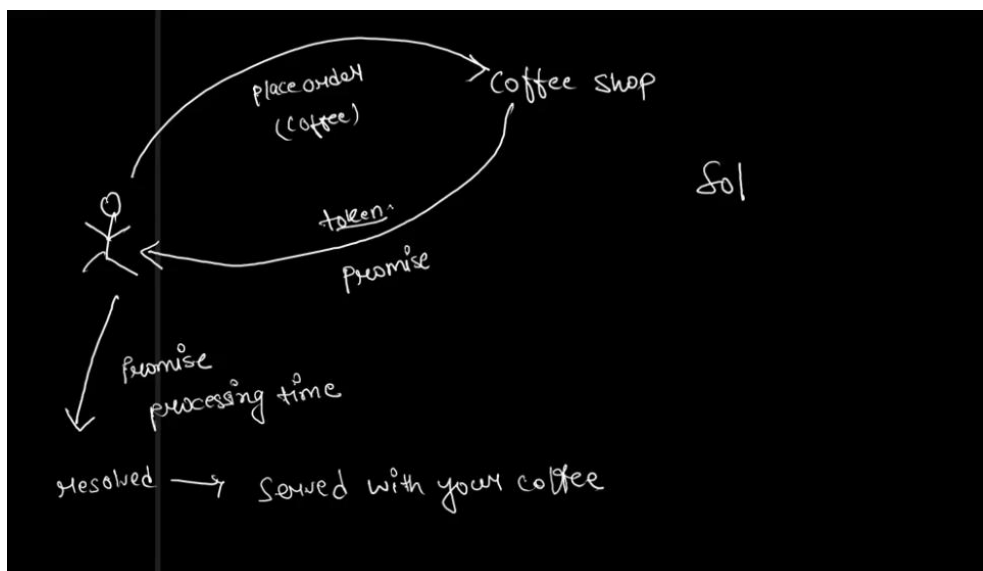 place order
(coffee)
Coffee shop
token.
promise
Sol
Promise
processing time
resolved → Served with your coffee